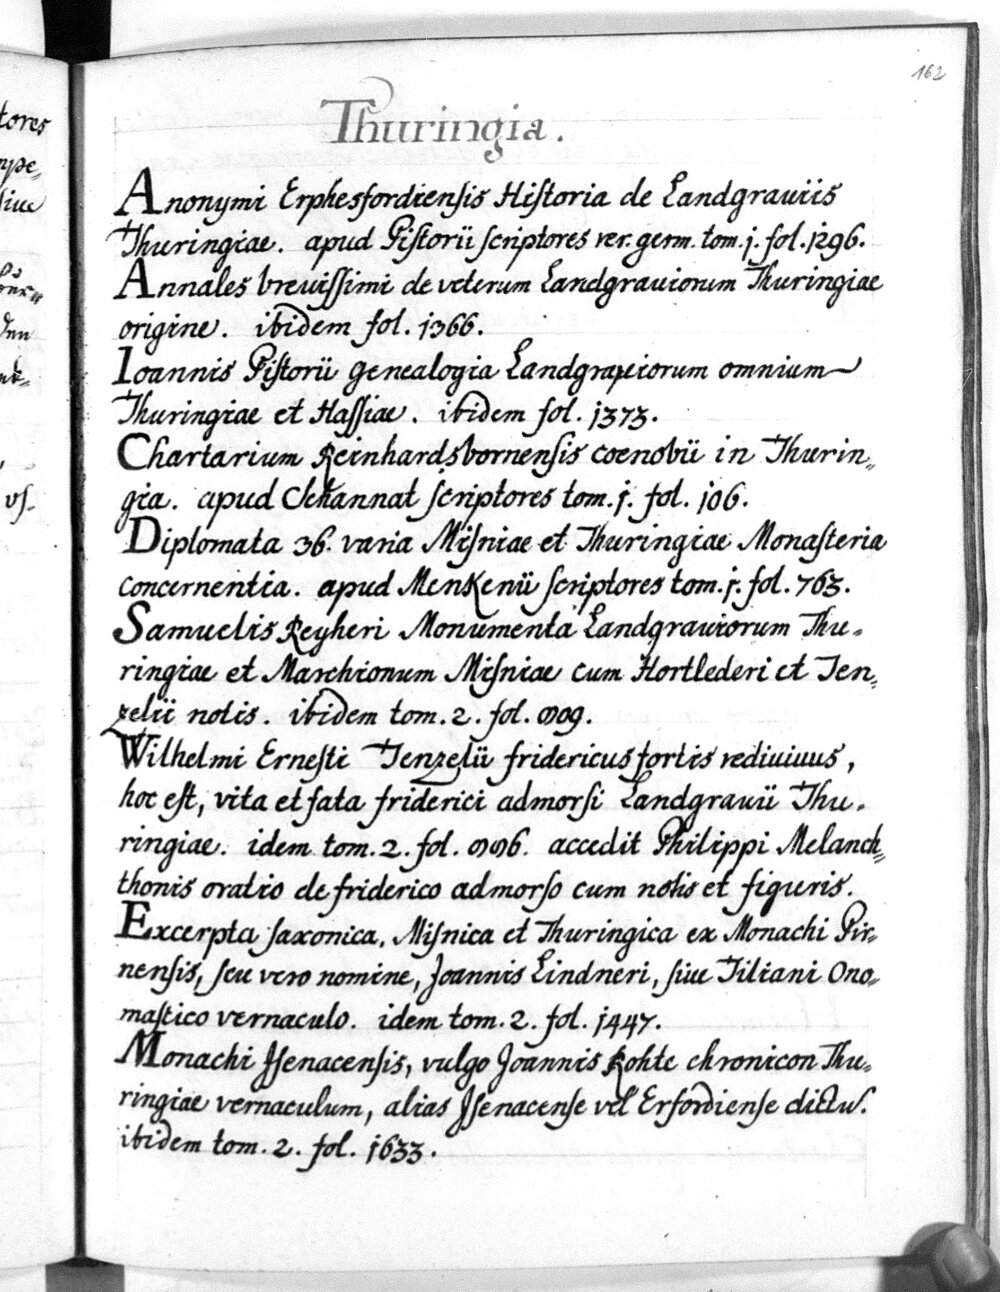 162
Thuringia.
Anonymi Erphesfordiensis Hiſtoria de Landgrauiis
Thuringiae. apud Piſtorii ſcriptores rer. germ. tom. j. fol. 1296.
Annales breuiſſimi de veterum Landgrauiorum Thuringiae
origine. ibidem fol. 1366.
Ioannis Piſtorii genealogia Landgrauiorum omnium
Thuringiae et Haſſiae. ibidem fol. 1373.
Chartarium Reinhardsbornenſis coenobii in Thurin„
gia. apud Schannat ſcriptores tom. j. fol. 106.
Diplomata 36. varia Miſniae et Thuringiae Monaſteria
concernentia. apud Menkenii ſcriptores tom. j. fol. 763.
Samuelis Reyheri Monumenta Landgrauiorum Thu„
ringiae et Marchionum Miſniae cum Hortlederi et Ten„
zelii notis. ibidem tom. 2. fol.
Wilhelmi Erneſti Tenzelii fridericus fortis rediuiuus,
hoc eſt, vita et fata friderici admorſi Landgrauii Thu„
ringiae. idem tom. 2. fol. accedit Philippi Melanch„
thonis oratio de friderico admorſo cum notis et figuris.
Excerpta ſaxonica, Miſnica et Thuringica ex Monachi Pir„
nenſis, ſeu vero nomine, Joannis Lindneri, ſiue Tiliani Ono„
maſtico vernaculo. idem tom. 2. fol. 1447.
Monachi Jſenacenſis, vulgo Joannis Rohte chronicon Thu„
ringiae vernaculum, alias Jſenacenſe vel Erfordienſe dictu.
ibidem tom. 2. fol. 1633.